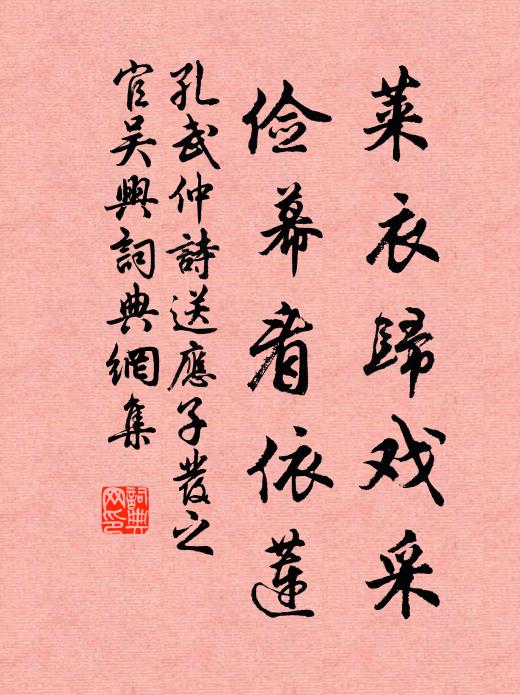 莱衣歸戏采
俭幕看依蓮
孔武仲詩送應子發之
官吴興詞典網集
詞典网印